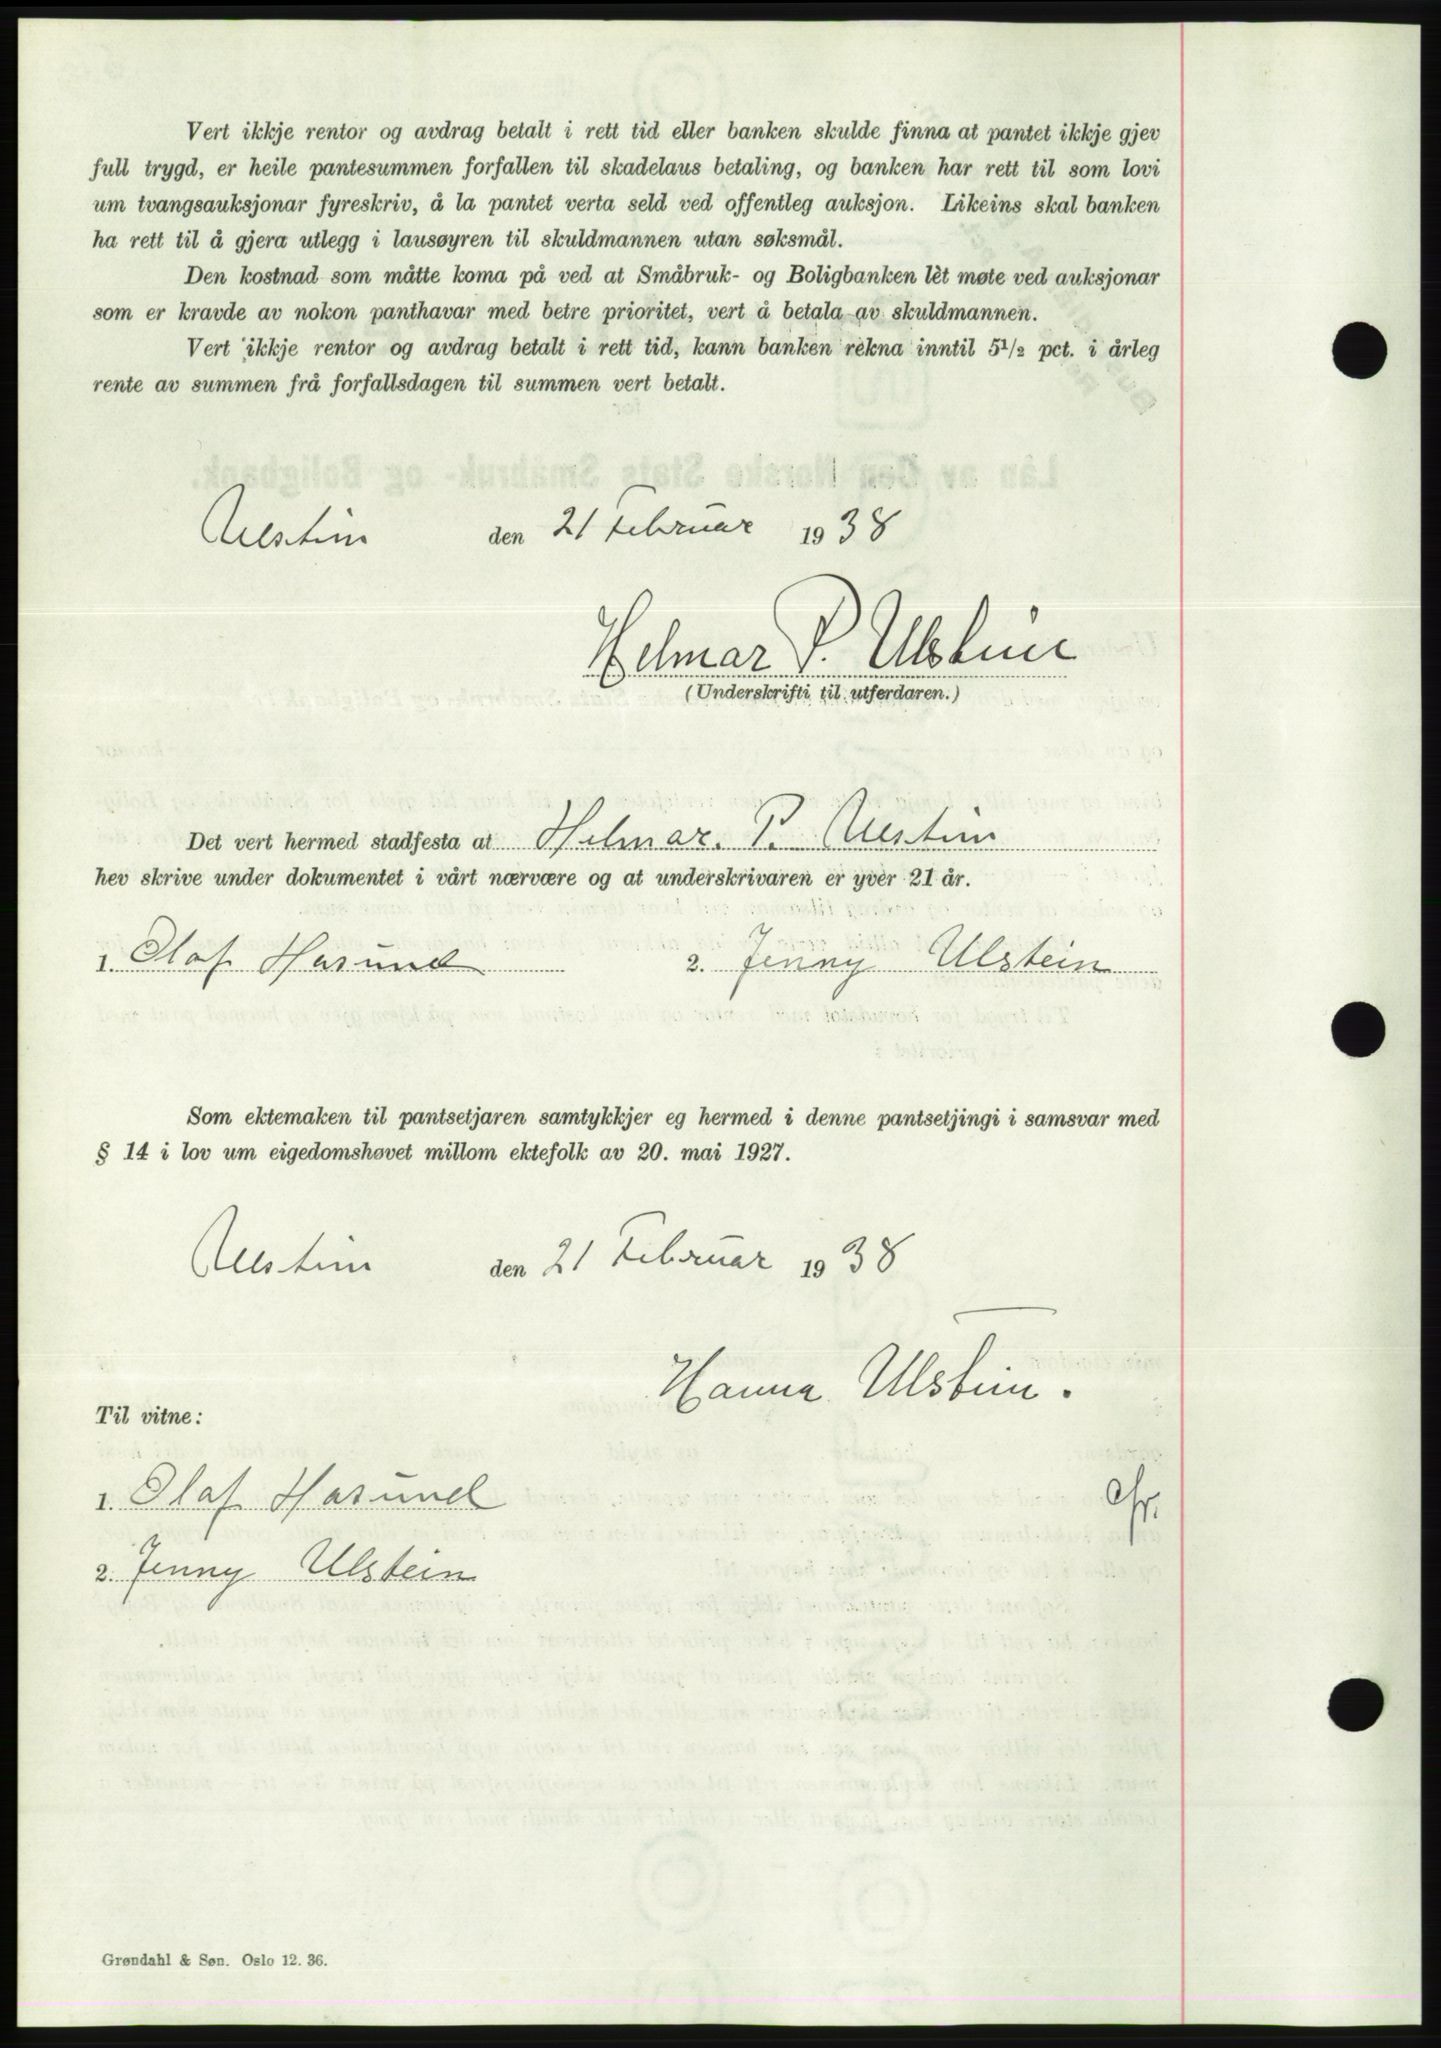 Vert ikkje rentor og avdrag betalt i rett tid eller banken skulde finna at pantet ikkje gjev
full trygd, er heile pantesummen forfallen til skadelaus betaling, og banken har rett til som lovi
um tvangsauksjonar fyreskriv, å la pantet verta seld ved offentleg auksjon. Likeins skal banken
ha rett til å gjera utlegg i lausøyren til skuldmannen utan søksmål.
Den kostnad som måtte koma på ved at Småbruk- og Boligbanken lèt møte ved auksjonar
som er kravde av nokon panthavar med betre prioritet, vert å betala av skuldmannen.
Vert ikkje rentor og avdrag betalt i rett tid, kann banken rekna inntil 5 1/2 pct. i årleg
rente av summen frå forfallsdagen til summen vert betalt.
Ulstein den 21 Februar 1938
Helmar P. Ulstein
(Underskrifti til utferdaren.)
Det vert hermed stadfesta at Helmar. P. Ulstein
hev skrive under dokumentet i vårt nærvære og at underskrivaren er yver 21 år.
1. Olaf Hasund 2. Jenny Ulstein
Som ektemaken til pantsetjaren samtykkjer eg hermed i denne pantsetjingi i samsvar med
§ 14 i lov um eigedomshøvet millom ektefolk av 20. mai 1927.
Ulstein den 21 Februar 1938
Hanna Ulstein.
Til vitne:
1. Olaf Hasund
2. Jenny Ulstein
Grøndahl & Søn. Oslo 12. 36.